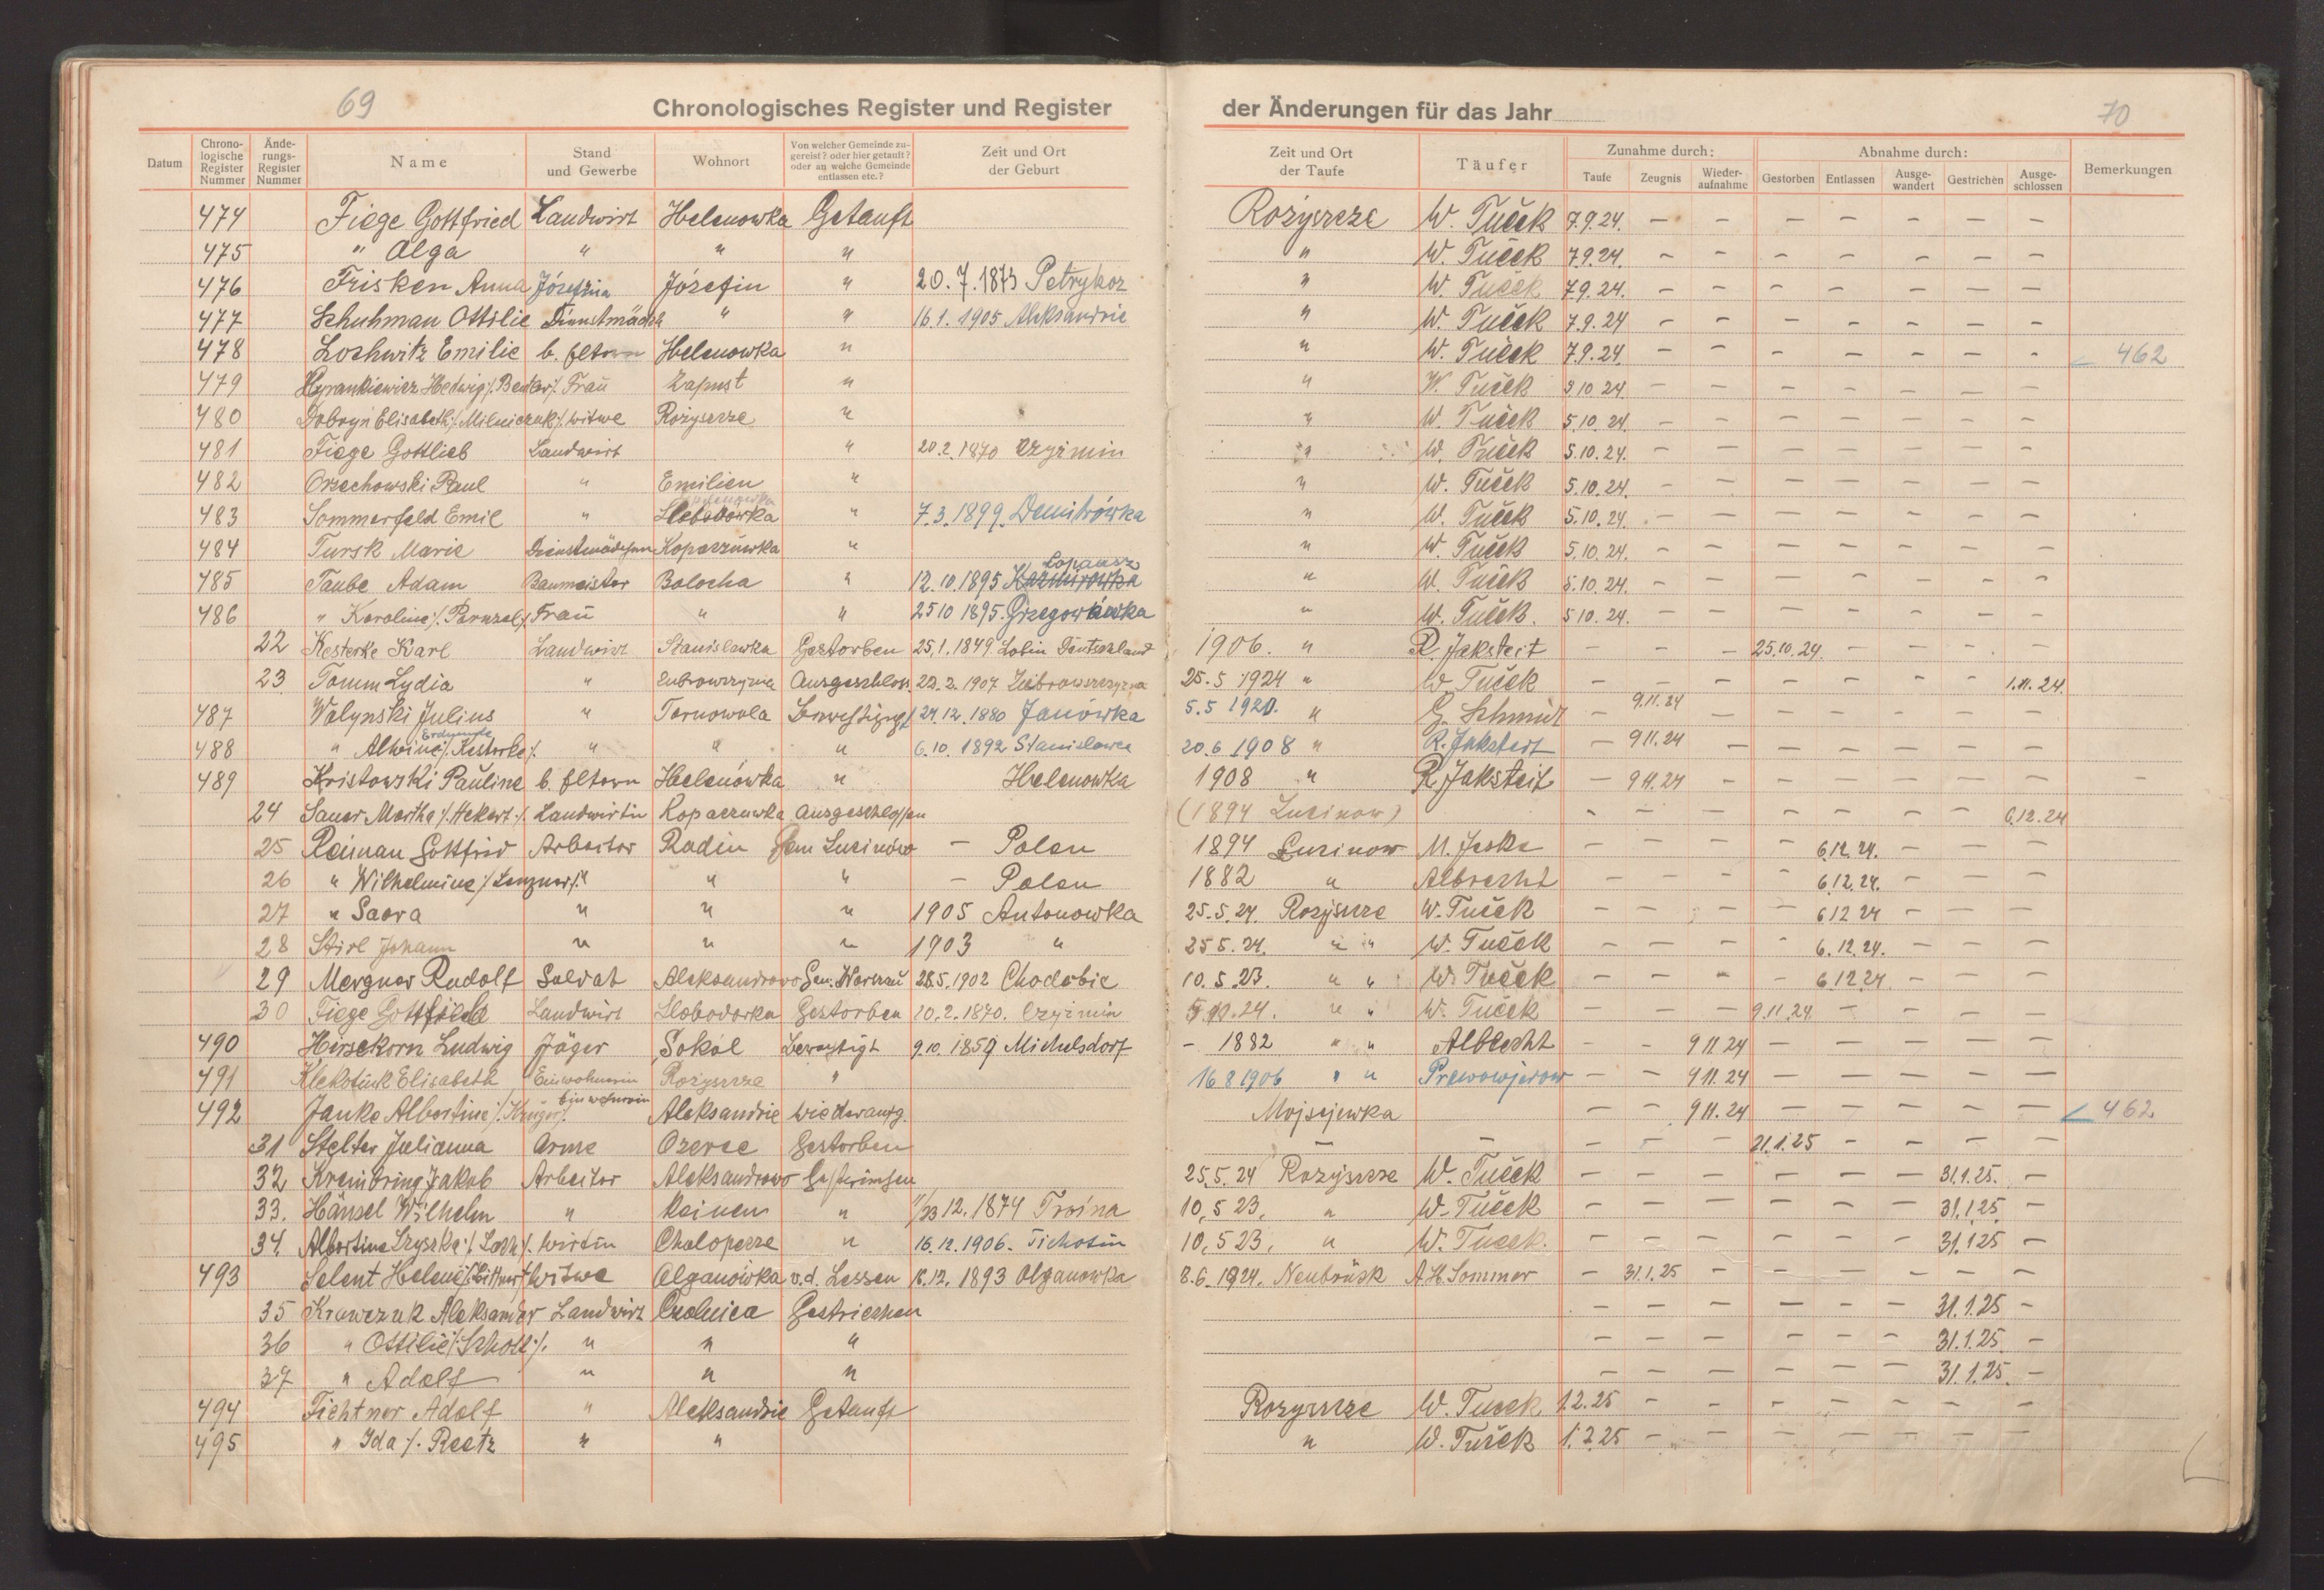 69
Chronologisches Register und Register der Änderungen für das Jahr
70
Datum Chrono-logische Register Nummer Ände-rungs-Register Nummer Name Stand und Gewerbe Wohnort Von welcher Gemeinde zu-gereist? oder hier getauft? oder an welche Gemeinde entlassen etc.? Zeit und Ort der Geburt Zeit und Ort der Taufe Täufer Zunahme durch: Taufe Zeugnis Wieder-aufnahme Abnahme durch: Gestorben Entlassen Ausge-wandert Gestrichen Ausge-schlossen Bemerkungen
474 Fiege Gottfried Landwirt Helenowka Getauft Rożyszcze W. Tuček 7.9.24. — — — — — — —
475 " Olga " " " " W. Tuček 7.9.24. — — — — — — —
476 Frisken Anna Józefina Józefin " 20.7.1873 Petrykoz " W. Tuček 7.9.24. — — — — — — —
477 Schuhman Ottilie Dienstmädch " " 16.1.1905 Aleksandrie " W. Tuček 7.9.24 — — — — — — —
478 Loshwitz Emilie b. Eltern Helenowka " " W. Tuček 7.9.24. — — — — — — — 462
479 Hedwig Frau Zapust " " W. Tuček 5.10.24. — — — — — — —
480 Dobryn Elisabeth /. Milniczuk /. Witwe Rożyszcze " " W. Tuček 5.10.24. — — — — — — —
481 Fiege Gottlieb Landwirt " 20.2.1870 Czyżmin " W. Tuček 5.10.24. — — — — — — —
482 Orzechowski Paul " Emilien " " W. Tuček 5.10.24. — — — — — — —
483 Sommerfeld Emil " Slobodówka " 7.3.1899. Demitrówka " W. Tuček 5.10.24. — — — — — — —
484 Tursk Marie Dienstmädchen Kopaczuwka " " W. Tuček 5.10.24. — — — — — — —
Lopansz
485 Taube Adam Baumeister Bolocha " 12.10.1895 Kazmirowka " W. Tuček 5.10.24. — — — — — — —
486 " Karoline /. Panzel /. Frau " " 25 10 1895. Grzegorkówka " W. Tuček. 5 10. 24. — — — — — — —
22 Kesterke Karl Landwirt Stanislawka Gestorben 25.1.1849. Lobin Deutschland 1906. " R. Jaksteit — — — 25.10.24. — — — —
23 Tomm Lydia " Zubrowszczyzna Ausgeschloss. 22.2.1907 Zubrowszczyzna 25.5 1924 " W. Tuček — — — — — — — 1.11.24.
487 Walynski Julius " Tarnowola 24.12.1880 Janówka 5.5 1920. " G. Schmidt — 9.11.24 — — — — — —
488 " Alwine /. Kesterke /. " " " 6.10.1892 Stanislawka 20.6 1908 " R. Jakstert — 9 11.24 — — — — — —
489 Kristowski Pauline b. Eltern Helenówka " Helenowka 1908 " R. Jaksteit — 9 11.24 — — — — — — —
24 Sauer Martha /. Hekert /. Landwirtin Kopaczuwka Ausgeschlossen (1894 Lucinow) — — — — — — — 6.12.24
25 Reiman Gottfried Arbeiter Radin Gem Lucinów — Polen 1894 Lucinow M. Jeske — — — — 6.12.24. — — —
26 " Wilhelmine /. Lenzner /. " " " — Polen 1882 " Albrecht — — — — 6.12.24. — — —
27 " Saora " " " 1905 Antonowka 25.5.24. Rożyszcze W. Tuček — — — — 6 12 24 — — —
28 Stirl Johann " " " 1903 " 25 5.24. " " W. Tuček — — — — 6.12.24. — — —
29 Mergner Rudolf Soldat Aleksandrowo Gem. Warszau 28.5.1902 Chodobie 10.5.23. " " W. Tuček — — — — 6 12 24 — — —
30 Fiege Gottlieb Landwirt Slobodarka Gestorben 10.2.1870. Czyżmin 5.10.24. " " W. Tuček — — — 9.11.24. — — — —
490 Hirsekorn Ludwig Jäger Sokol 9.10.1859 Michelsdorf – 1882 " " Albrecht — — 9 11 24 — — — — —
491 Klekotiuk Elisabeth Einwohnerin Rożyszcze " 16 8 1906 " " — — 9 11.24 — — — — —
492 Janke Albertine /. Krüger /. Einwohnerin Aleksandrie Wiederaufg. Mojsejewka — — 9 11.24 — — — — — 462
31 Stelter Julianna Arme Ozerce Gestorben — — — — — 21.1.25 — — — —
32 Krembring Jakob Arbeiter Aleksandrowo Gestrichen 25.5.24 Rożyszcze W. Tuček — — — — — — 31.1.25. —
33. Hänsel Wilhelm " Keinen " 11/23 12.1874 Troina 10,5 23, " W. Tuček — — — — — — 31.1.25 —
34. Albertine Szyszka /. Loth /. Wirtin Chalopecze " 16.12.1906. Tichotin 10,5 23, " W. Tuček. — — — — — — 31.1 25 —
493 Selent Helene Witwe Olganówka v.d. Lessen 16.12.1893 Olganowka 8.6.1924. Neubrück A.H. Sommer — 31.1.25 — — — — — —
35 Krawczuk Aleksander Landwirt Czolnica Gestrichen — — — — — — 31.1.25 —
36 " Ottilie /. Schott /. " " " — — — — — — 31.1.25. —
37 " Adolf " " " — — — — — — 31.1.25. —
494 Fichtner Adolf " Aleksandrie Getauft Rożyszcze W. Tuček 1.2.25 — — — — — — —
495 " Ida /. Reetz " " " W. Tuček 1.2.25 — — — — — — —